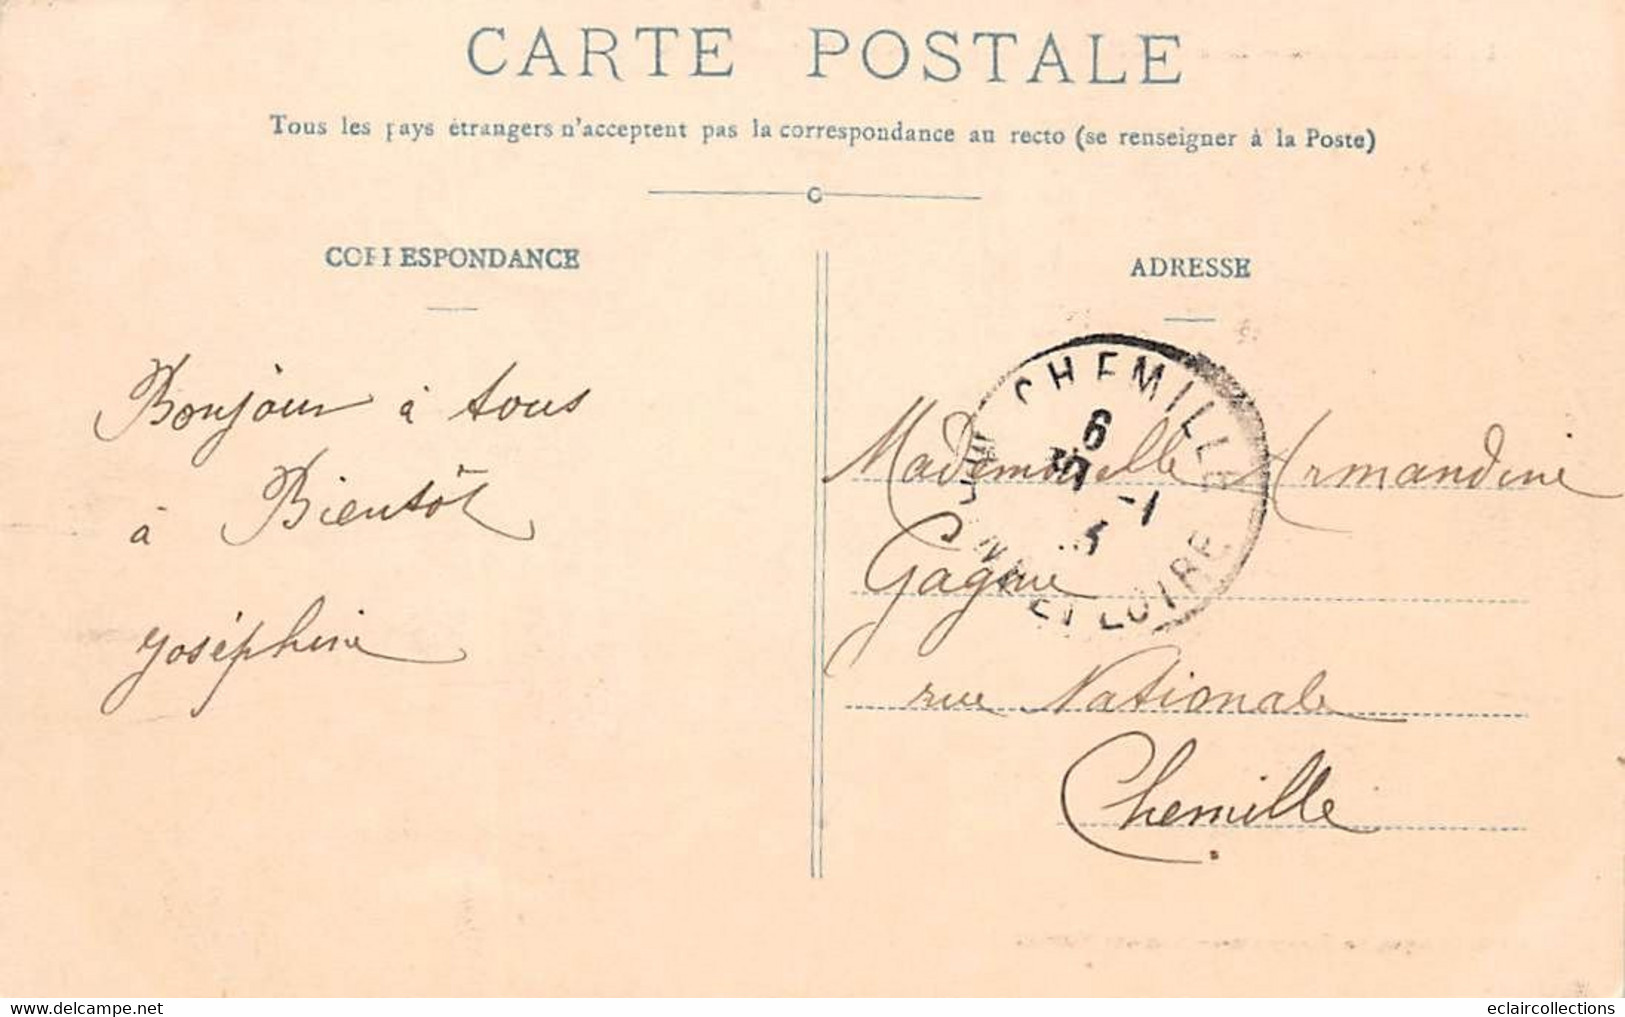 CARTE POSTALE
Tous les pays étrangers n'acceptent pas la correspondance au recto (se renseigner à la Poste)
CORRESPONDANCE
ADRESSE
Bonjour à tous
à Bientôt
Joséphine
CHEMILLE
6
5 -1
MAINE ET LOIRE
Mademoiselle Armandine
rue Nationale
Chemille
www.delcampe.net
eclaircollections